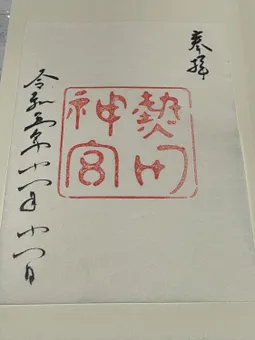 奉拝
熱田
神宮
令和五年十一月